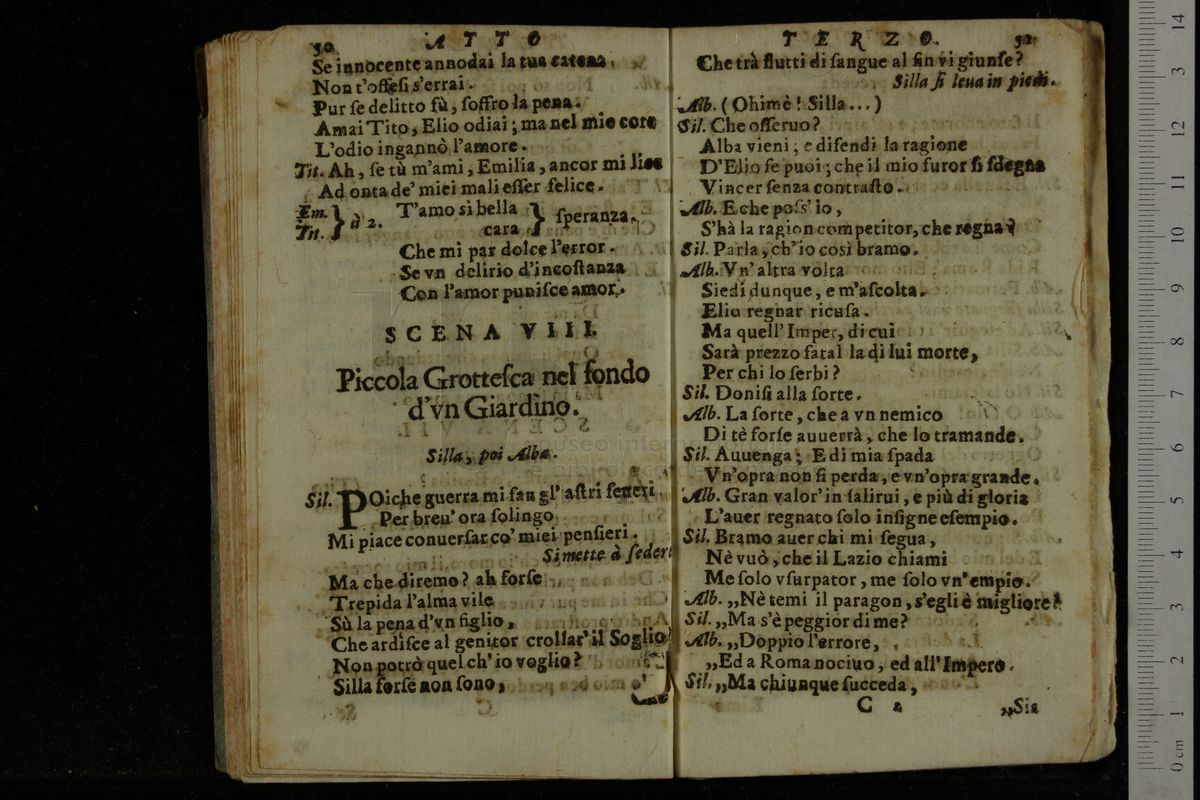 50 ATTO
Se innocente annodai la tua catena,
Non t'offesi s'errai.
Pur se delitto fù, soffro la pena.
Amai Tito, Elio odiai; ma nel mio core
L'odio ingannò l'amore.
Tit. Ah, se tù m'ami, Emilia, ancor mi lice
Ad onta de' miei mali esser felice.
Em. } à 2. T'amo sì bella } speranza.
Tit. } cara }
Che mi par dolce l'error.
Se vn delirio d'incostanza
Con l'amor punisce amor.
SCENA VIII.
Piccola Grottesca nel fondo
d'vn Giardino.
Silla, poi Alba.
Sil. POiche guerra mi fan gl' astri seueri
Per breu' ora solingo
Mi piace conuersar co' miei pensieri.
Si mette à seder
Ma che diremo? ah forse
Trepida l'alma vile
Sù la pena d'vn figlio,
Che ardisce al genitor crollar' il Soglio?
Non potrò quel ch' io voglio?
Silla forse non sono,
TERZO.
Che trà flutti di sangue al fin vi giunse?
Silla si leua in piedi.
Alb. (Ohimè! Silla...)
Sil. Che osseruo?
Alba vieni; e difendi la ragione
D'Elio se puoi; che il mio furor si sdegna
Vincer senza contrasto.
Alb. E che poss' io,
S'hà la ragion competitor, che regna?
Sil. Parla, ch'io così bramo.
Alb. Vn' altra volta
Siedi dunque, e m'ascolta.
Elio regnar ricusa.
Ma quell' Imper, di cui
Sarà prezzo fatal la di lui morte,
Per chi lo serbi?
Sil. Donisi alla sorte.
Alb. La sorte, che a vn nemico
Di tè forse auuerrà, che lo tramande.
Sil. Auuenga; E di mia spada
Vn'opra non si perda, e vn'opra grande.
Alb. Gran valor' in salirui, e più di gloria
L'auer regnato solo insigne esempio.
Sil. Bramo auer chi mi segua,
Nè vuò, che il Lazio chiami
Me solo vsurpator, me solo vn' empio.
Alb. „Nè temi il paragon, s'egli è migliore?
Sil. „Ma s'è peggior di me?
Alb. „Doppio l'errore,
„Ed a Roma nociuo, ed all' Impero.
Sil. „Ma chiunque succeda,
C 2 „Sia